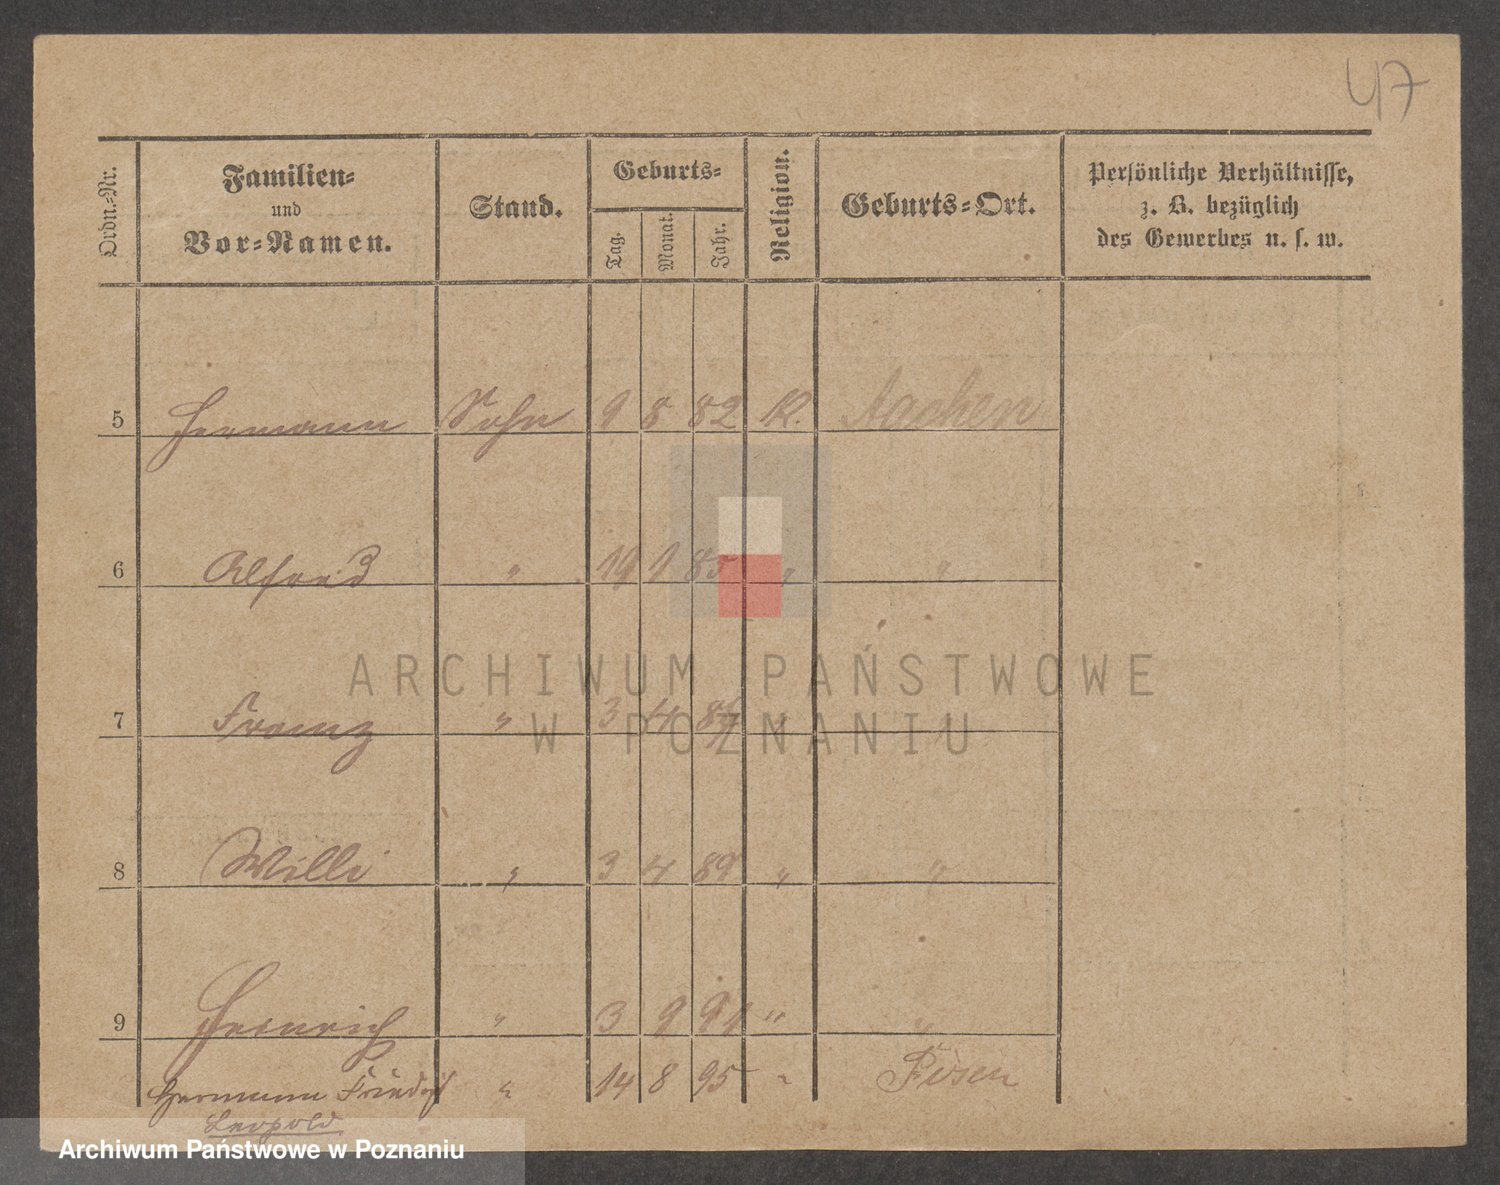 47
Ordn.-Nr.
Familien-
und
Vor-Namen.
Stand.
Geburts-
Tag.
Monat.
Jahr.
Religion.
Geburts-Ort.
Persönliche Verhältnisse,
z. B. bezüglich
des Gewerbes u. s. w.
5 Hermann Sohn 9 8 82 K. Aachen
6 Alfred " 19 1 85 " "
ARCHIWUM PAŃSTWOWE
7 Franz " 3 4 " "
W POZNANIU
8 Willi " 3 4 89 " "
9 Heinrich " 3 9 91 " "
Hermann Friedrich " 14 8 95 "
Leopold
Archiwum Państwowe w Poznaniu